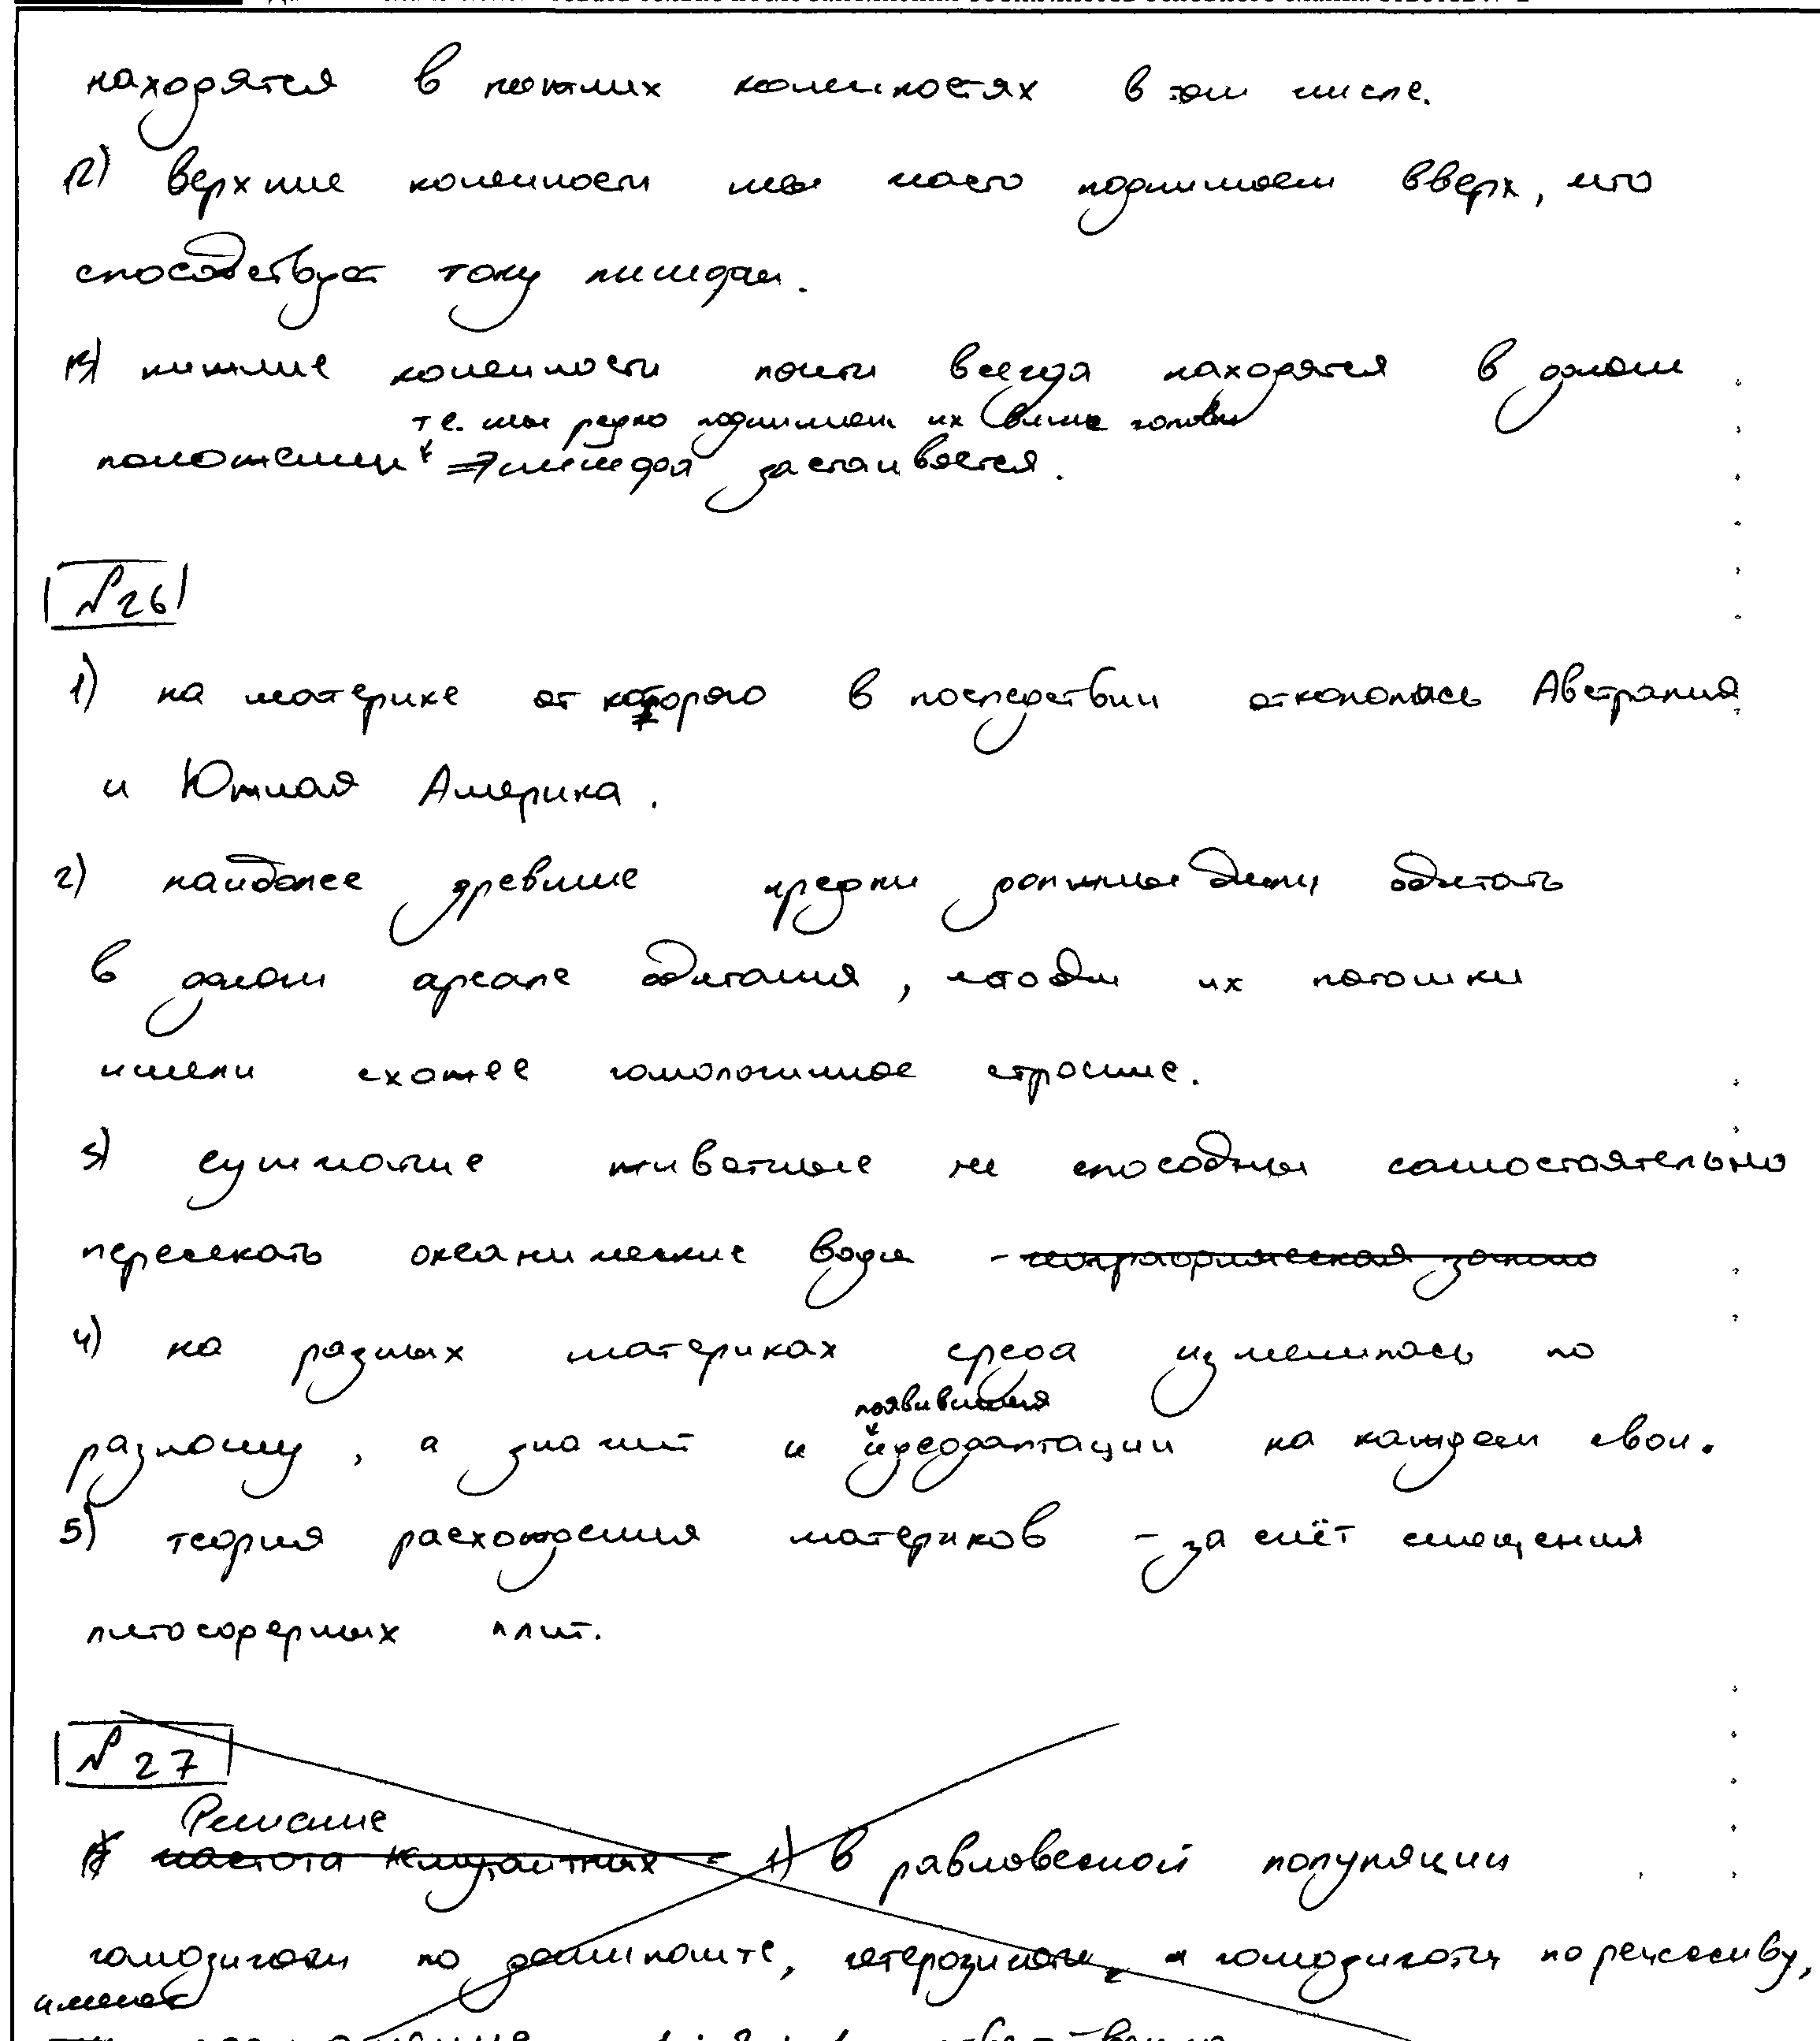 находятся в нижних конечностях в том числе.
12) верхние конечности мы часто поднимаем вверх, что
способствует току лимфы.
13) нижние конечности почти всегда находятся в одном
т.е. мы редко поднимаем их выше головы
положении => лимфа застаивается.
№26
1) на материке от которого в последствии откололась Австралия
и Южная Америка.
2) наиболее древние предки должны были обитать
в одном ареале обитания, чтобы их потомки
имели схожее гомологичное строение.
3) сумчатые животные не способны самостоятельно
пересекать океанические воды - географическая
4) на разных материках среда изменилась по
появившиеся
разному, а значит и идеоадаптации на каждом свои.
5) теория расхождения материков - за счёт смещения
литосферных плит.
№27
Решение
частота 1) в равновесной популяции
гомозиготы по доминанте, гетерозиготы, и гомозиготы по рецессиву,